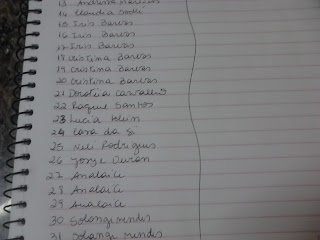 13 Andressa
14 Claudia
15 Iris Barcos
16 Iris Barcos
17 Iris Barcos
18 Cristina Barcos
19 Cristina Barcos
20 Cristina Barcos
21 Dorotéa Carvalho
22 Raquel Santos
23 Lucia Klein
24 Casa da
25 Neli Rodrigues
26 Jorge Duran
27 Analaice
28 Analaice
29 Analaice
30 Solange Mendes
31 Solange Mendes